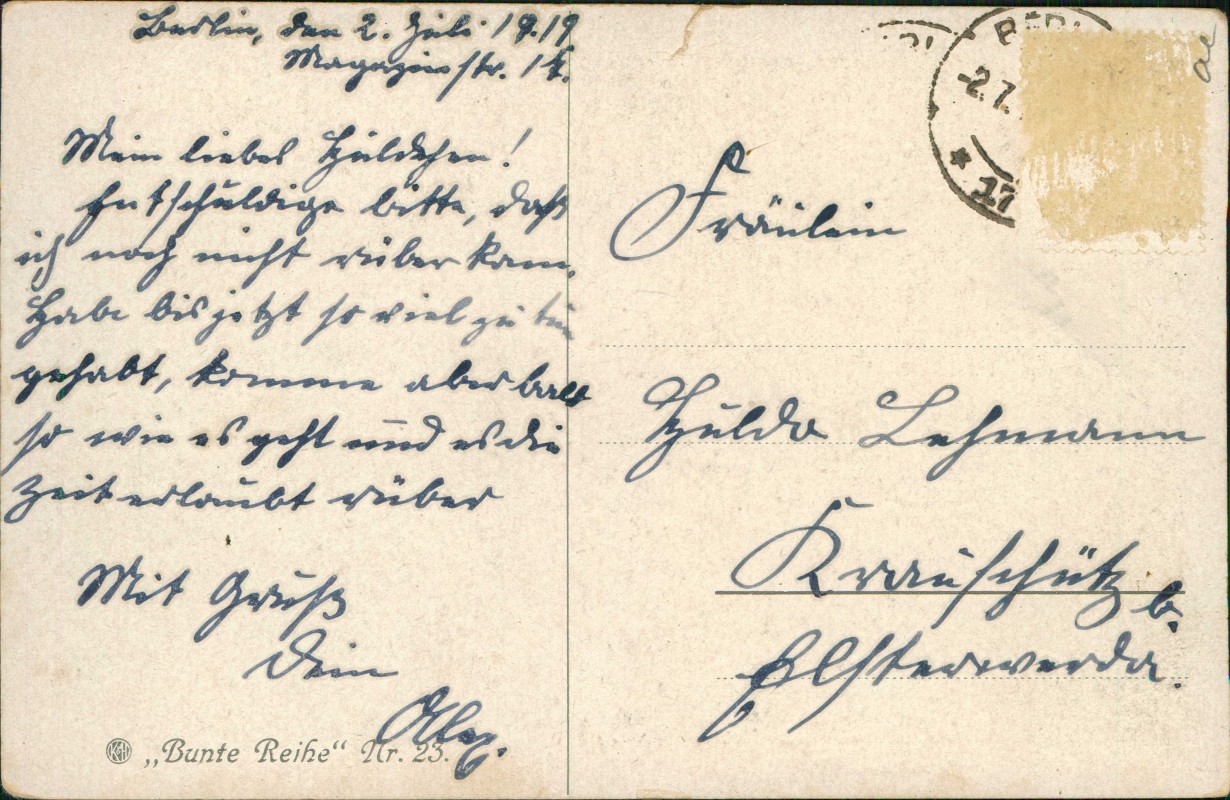 Berlin, den 2. Juli 1919
Magazinstr. 14.
Mein liebes Huldchen!
Entschuldige bitte, daß
ich noch nicht rüber kam.
Habe bis jetzt so viel zu tun
gehabt, komme aber bald
so wie es geht und es die
Zeit erlaubt rüber
Mit Gruß
Dein
Alex.
K&H „Bunte Reihe“ Nr. 23.
-2.7.
* 17
ae
Fräulein
Hulda Lehmann
Krauschütz b.
Elsterwerda.